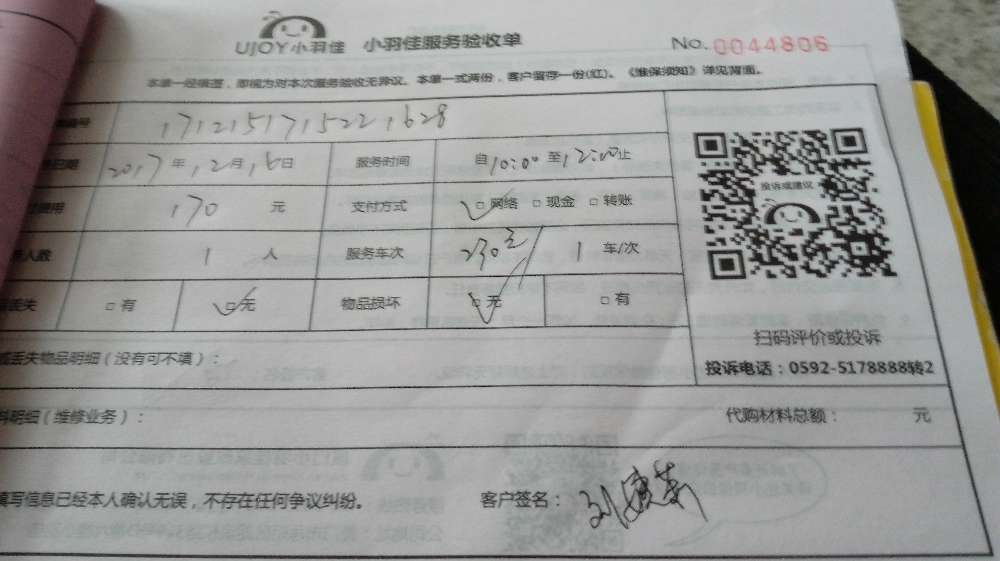 UJOY小羽佳 小羽佳服务验收单 No. 0044806
本单一经填签，即视为对本次服务验收无异议。本单一式两份，客户留存一份(红)。《维保须知》详见背面。
编号 1712151715221628
日期 2017年12月16日 服务时间 自10:00至12:00止
费用 170 元 支付方式 □网络 □现金 □转账
人数 1 人 服务车次 230元/1 车/次
丢失 □有 □无 物品损坏 □无 □有
投诉或建议
扫码评价或投诉
投诉电话：0592-5178888转2
或丢失物品明细（没有可不填）：
料明细（维修业务）： 代购材料总额： 元
填写信息已经本人确认无误，不存在任何争议纠纷。 客户签名：